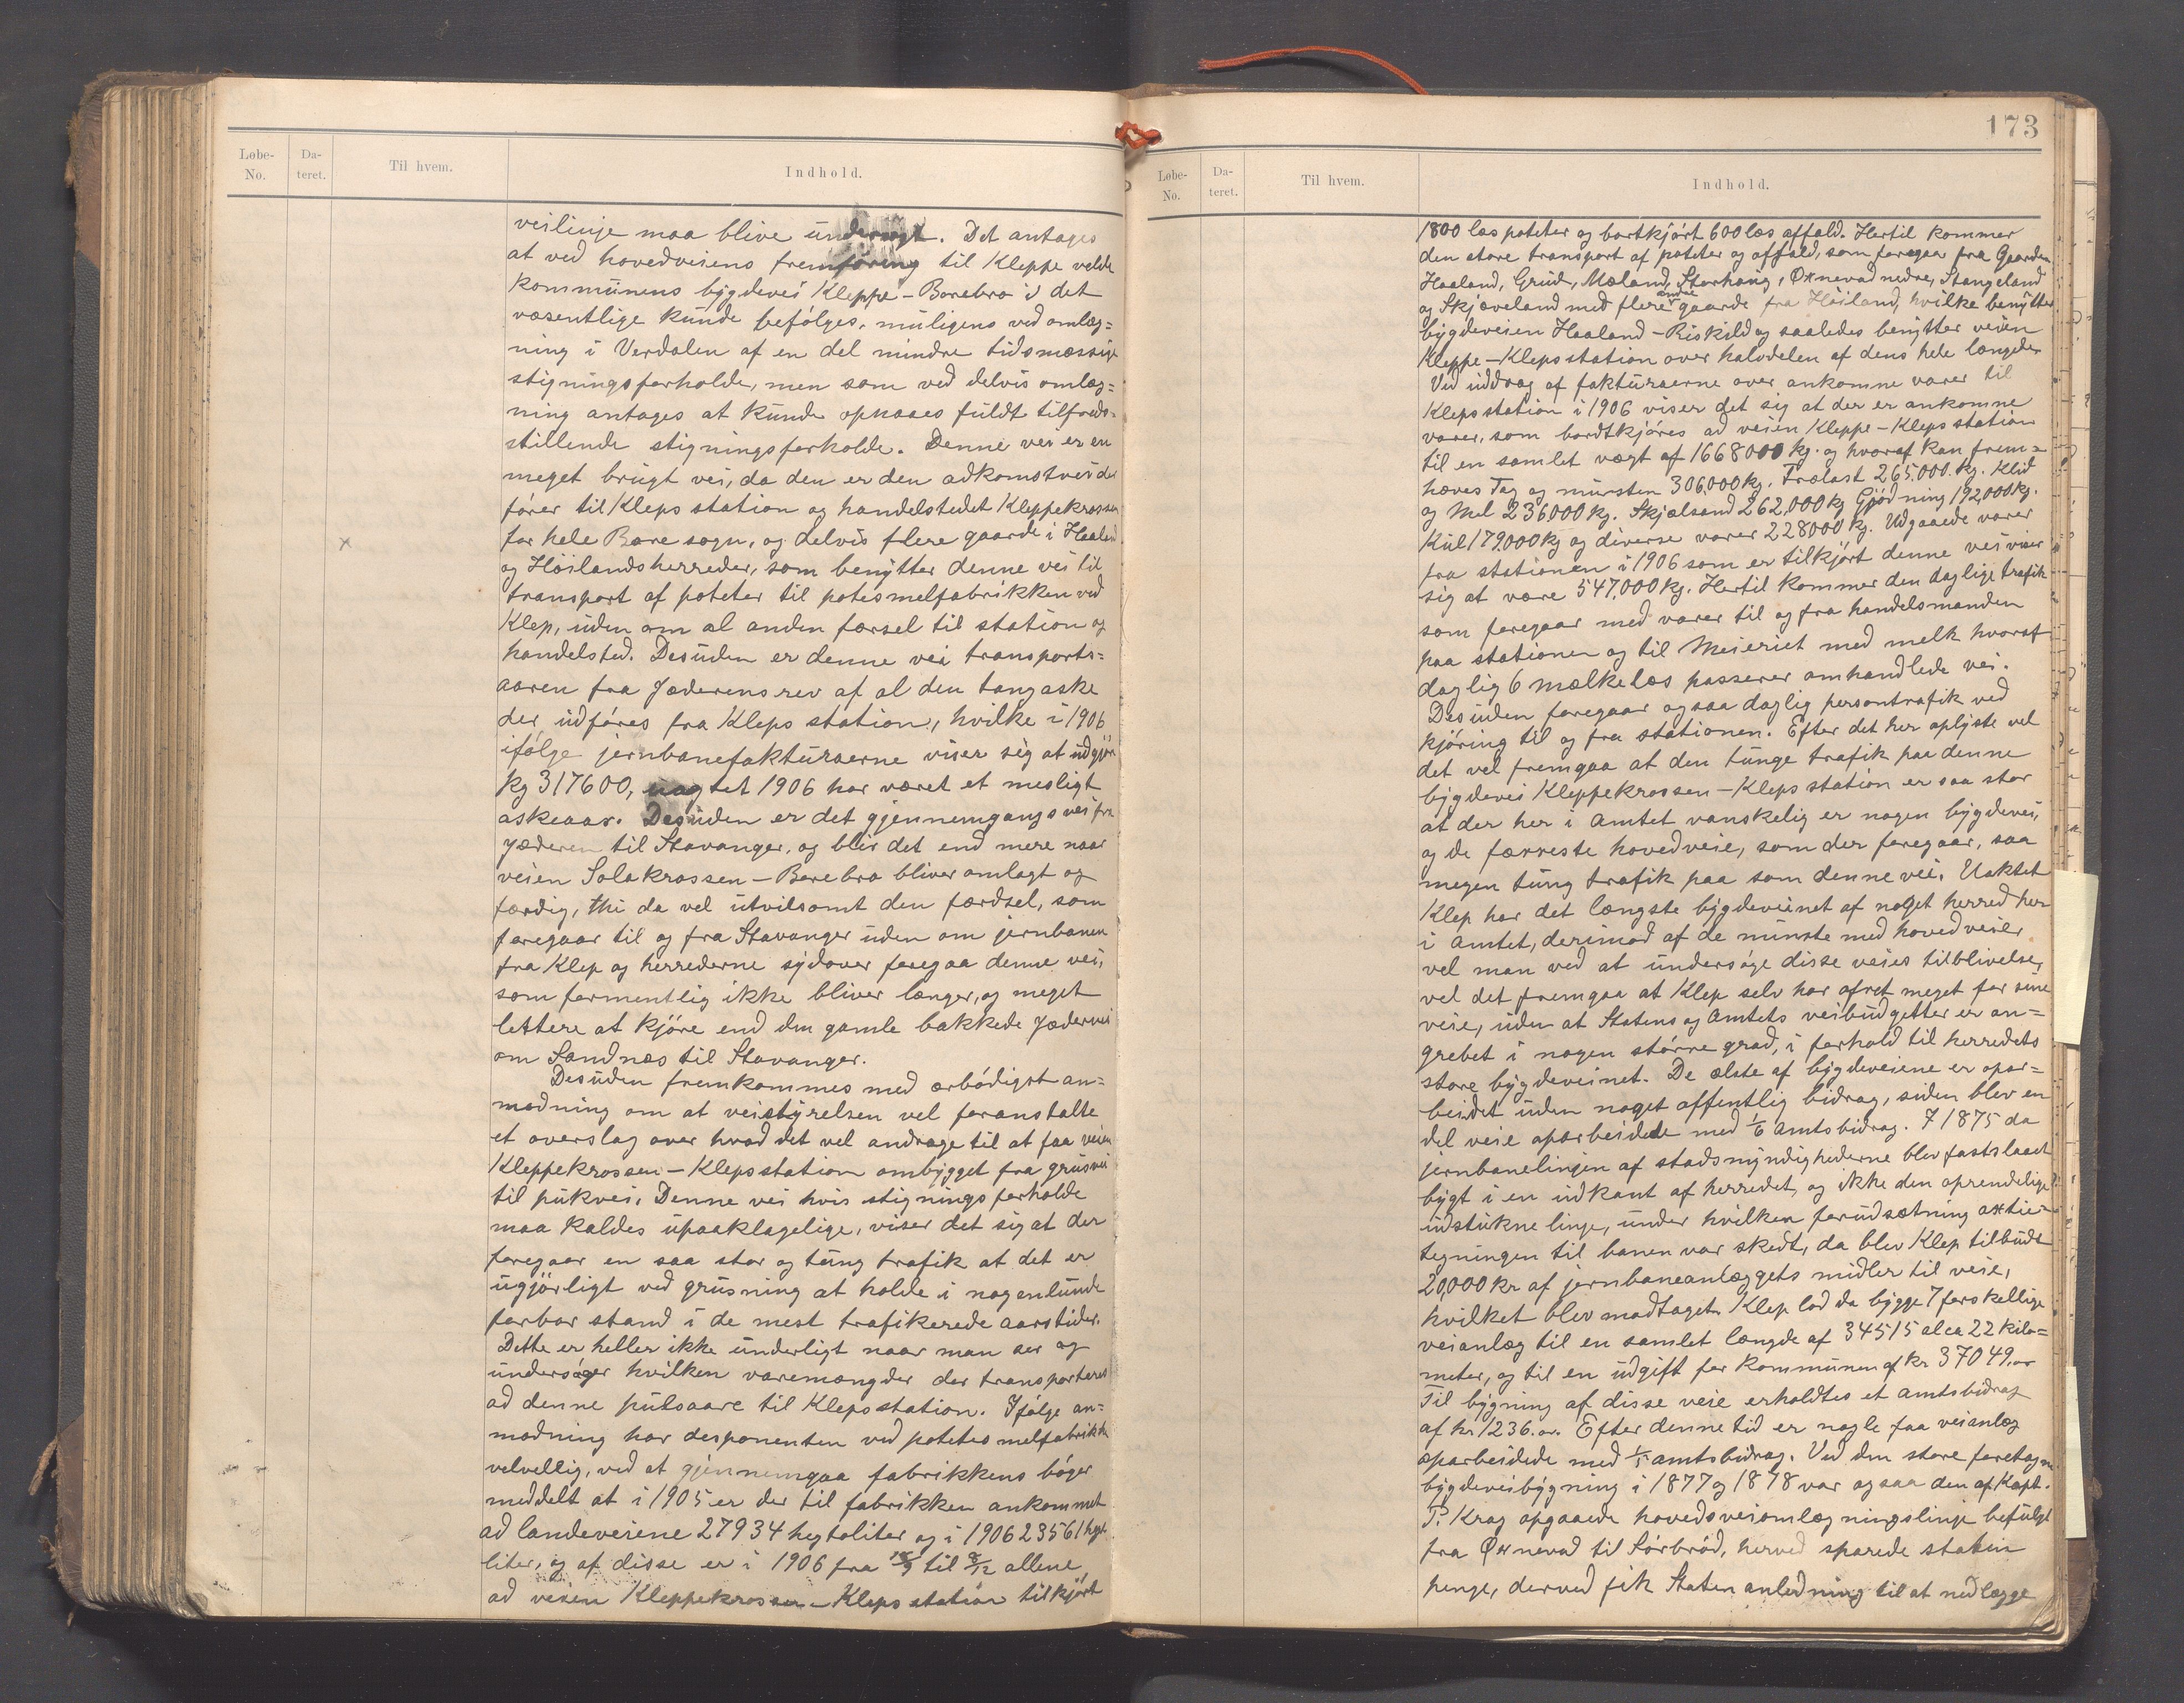 Løbe-No. Da-teret. Til hvem. Indhold.
veilinje maa blive undersøgt. Det antages
at ved hovedveiens fremføring til Kleppe velde
kommunens bygdevei Kleppe - Borebro i det
væsentlige kunde befølges, muligens ved omlæg=
ning i Verdalen af en del mindre tidsmæssige
stigningsforholde, men som ved delvis omlæg=
ning antages at kunde opnaaes fuldt tilfreds=
stillende stigningsforholde. Denne vei er en
meget brugt vei, da den er den adkomstvei der
fører til Kleps station og handelstedet Kleppekrossen
for hele Bore sogn, og delvis flere gaarde i Haaland
og Höilandsherreder, som benytter denne vei til
transport af poteter til potesmelfabrikken ved
Klep, uden om al anden færsel til station og
handelsted. Desuden er denne vei transports=
aaren fra Jæderens rev af al den tangaske
der udføres fra Kleps station, hvilke i 1906
ifølge jernbanefakturaerne viser sig at udgjør
kg 317600, uagtet 1906 har været et mesligt
askeaar. Desuden er det gjennemgangsvei fra
Jæderen til Stavanger, og blir det end mere naar
veien Solakrossen - Borebro bliver omlagt og
færdig, thi da vel utvilsomt den færdsel, som
foregaar til og fra Stavanger uden om jernbanen
fra Klep og herrederne sydover foregaa denne vei,
som formentlig ikke bliver længer, og meget
lettere at kjøre end den gamle bakkede Jædervei
om Sandnæs til Stavanger.
Desuden fremkommes med ærbödigst an=
modning om at veistyrelsen vel foranstalte
et overslag over hvad det vel andrage til at faa veien
Kleppekrossen - Klepsstation ombygget fra grusvei
til pukvei. Denne vei hvis stigningsforholde
maa kaldes upaaklagelige, viser det sig at der
foregaar en saa stor og tung trafik at det er
ugjörligt ved grusning at holde i nogenlunde
farbar stand i de mest trafikerede aarstider.
Dette er heller ikke underligt naar man ser og
undersøger hvilken varemængder der transporteres
ad denne pulsaare til Klepsstation. Ifølge an=
modning har desponenten ved potetesmelfabrikke
velvellig, ved at gjennemgaa fabrikkens bøger
meddelt at i 1905 er der til fabrikken ankommet
ad landeveiene 27934 hegtoliter og i 1906 23561 hegt
liter, og af disse er i 1906 fra til 8/12 allene
ad veien Kleppekrossen - Kleps station tilkjørt
173
Løbe-No. Da-teret. Til hvem. Indhold.
1800 læs poteter og bortkjørt 600 læs affald. Hertil kommer
den store transport af poteter og affald, som foregaar fra Gaarden
Haaland, Grud, Mæland, Storhaug, Øxnevad nedre, Stangeland
og Skjæveland med flere andre gaarde fra Höiland, hvilke benytter
bygdeveien Haaland - Riskild og saaledes benytter veien
Kleppe - Klepsstation over halvdelen af dens hele længde.
Ved uddrag af fakturaerne over ankomne varer til
Klepsstation i 1906 viser det sig at der er ankomne
varer, som bordtkjøres ad veien Kleppe - Klepsstation
til en samlet vægt af 1668000 kg. og hvoraf kan frem=
hæves Tag og mursten 306,000 kg. Trælast 265,000. kg. Klid
og Mel 236000 kg. Skjælsand 262,000 kg Gjödning 192,000 kg.
Kul 179,000 kg og diverse varer 228000 kg. Udgaaede varer
fra stationen i 1906 som er tilkjørt denne vei viser
sig at være 547,000 kg. Hertil kommer den daglige trafik
som foregaar med varer til og fra handelsmanden
paa stationen og til Meieriet med melk hvoraf
daglig 6 mælkelæs passerer omhandlede vei.
Desuden foregaar ogsaa daglig persontrafik ved
kjøring til og fra stationen. Efter det her oplyste vel
det vel fremgaa at den tunge trafik paa denne
bygdevei Kleppekrossen - Kleps station er saa stor
at der her i Amtet vanskelig er nogen bygdevei,
og de færreste hovedveie, som der foregaar, saa
megen tung trafik paa som denne vei. Uaktet
Klep har det længste bygdeveinet af noget herred her
i Amtet, derimod af de minste med hovedveier
vel man ved at undersøge disse veies tilblivelse,
vel det fremgaa at Klep selv har ofret meget for sine
veie, uden at Statens og Amtets veibudgetter er an=
grebet i nogen større grad, i forhold til herredets
store bygdeveinet. De ælste af bygdeveiene er opar=
beidet uden noget offentlig bidrag, siden blev en
del veie oparbeidede med 1/6 Amtsbidrag. I 1875 da
jernbanelinjen af stadsmyndighederne blev fastslaaet
bygt i en udkant af herredet, og ikke den oprendelige
udstukne linje, under hvilken forudsætning aktie=
tegningen til banen var skedt, da blev Klep tilbudt
20,000 kr af jernbaneanlæggets midler til veie,
hvilket blev modtaget. Klep lod da bygge 7 forskellige
veianlæg til en samlet længde af 34515 al ca 22 kilo=
meter, og til en udgift for kommunen af kr 37049.00
Til bygning af disse veie erholdtes et amtsbidrag
af kr. 1236.00. Efter denne tid er nogle faa veianlæg
oparbeidede med 1/5 amtsbidrag. Ved den store foretagne
bygdeveibygning i 1877 og 1878 var ogsaa den af Kapt.
P. Krag opgaaede hovedsveiomlægningslinje befulgt
fra Øxnevad til Sörbröd, herved sparede staten
penge, derved fik Staten anledning til at nedlægge